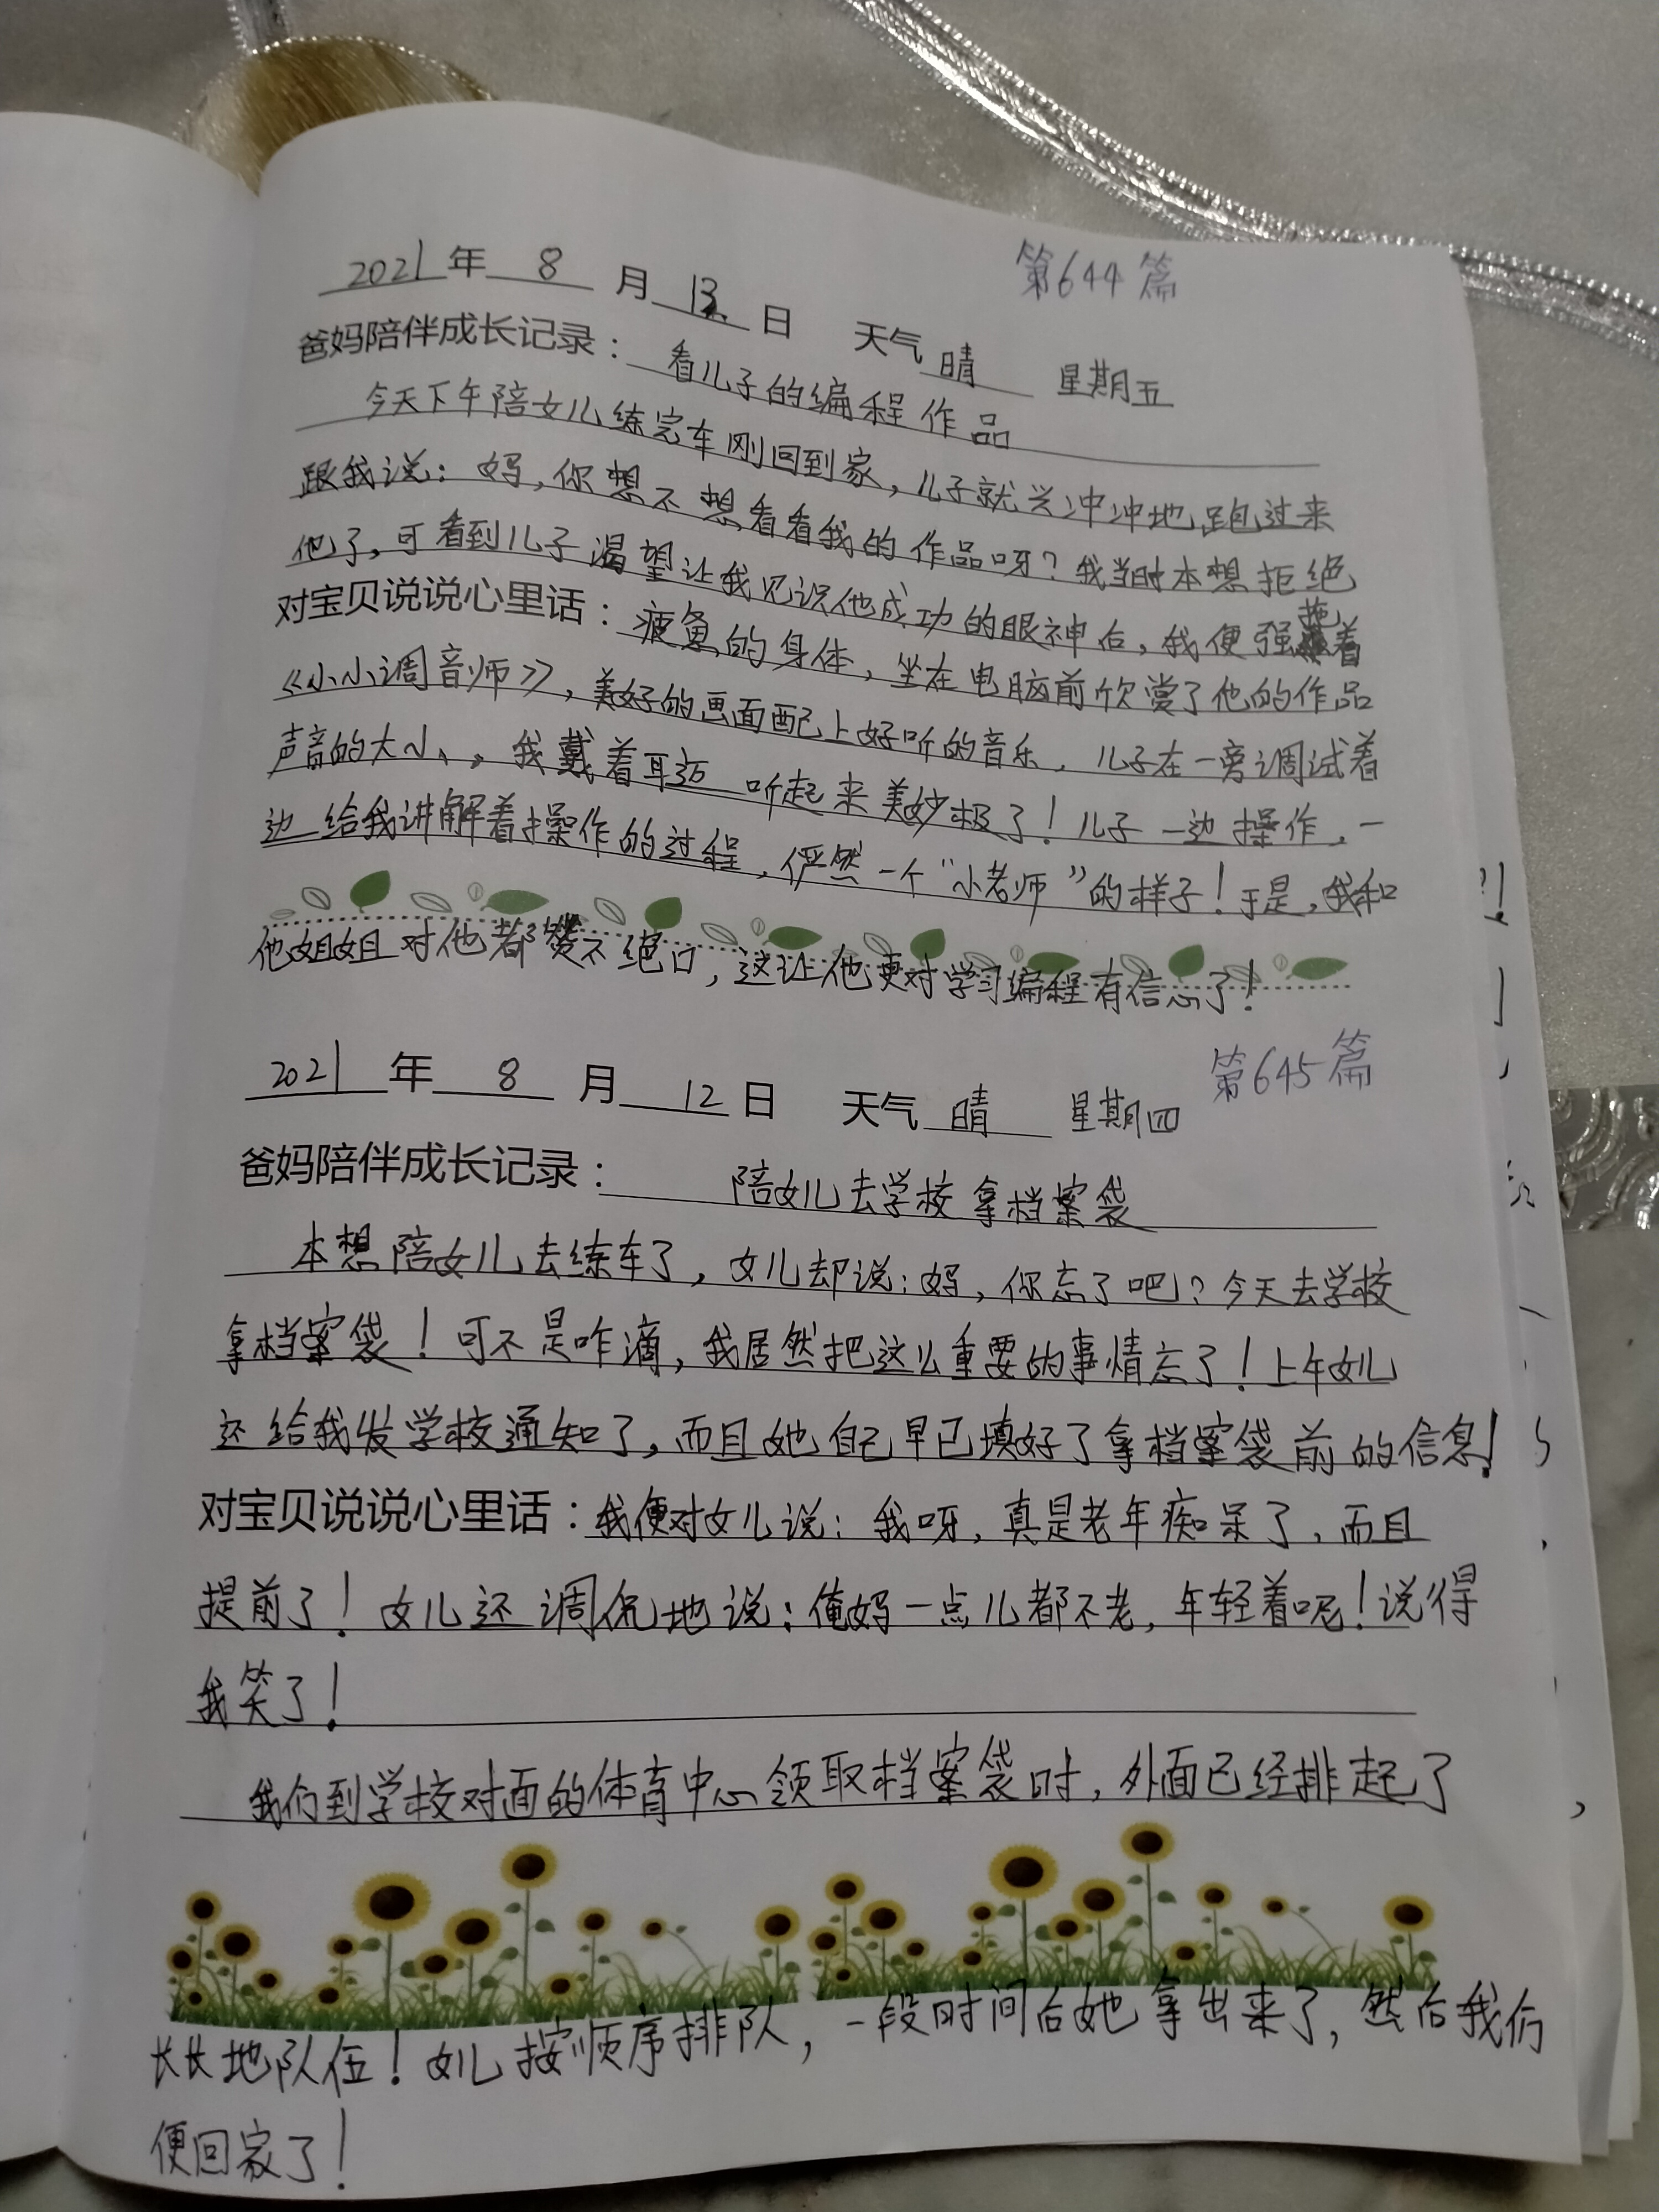 第644篇
2021年 8 月 13 日 天气 晴 星期五
爸妈陪伴成长记录: 看儿子的编程作品
今天下午陪女儿练完车刚回到家,儿子就兴冲冲地跑过来
跟我说:妈,你想不想看看我的作品呀?我当时本想拒绝
他了,可看到儿子渴望让我见识他成功的眼神后,我便强拖着
对宝贝说说心里话: 疲惫的身体,坐在电脑前欣赏了他的作品
《小小调音师》,美好的画面配上好听的音乐,儿子在一旁调试着
声音的大小、。我戴着耳迈 听起来美妙极了!儿子一边操作,一
边给我讲解着操作的过程,俨然一个“小老师”的样子!于是,我和
他姐姐对他都赞不绝口,这让他更对学习编程有信心了!
第645篇
2021 年 8 月 12 日 天气 晴 星期四
爸妈陪伴成长记录: 陪女儿去学校拿档案袋
本想陪女儿去练车了,女儿却说:妈,你忘了吧?今天去学校
拿档案袋!可不是咋滴,我居然把这么重要的事情忘了!上午女儿
还给我发学校通知了,而且她自己早已填好了拿档案袋前的信息!
对宝贝说说心里话:我便对女儿说:我呀,真是老年痴呆了,而且
提前了!女儿还调侃地说:俺妈一点儿都不老,年轻着呢!说得
我笑了!
我们到学校对面的体育中心领取档案袋时,外面已经排起了
长长地队伍!女儿按顺序排队,一段时间后她拿出来了,然后我们
便回家了!